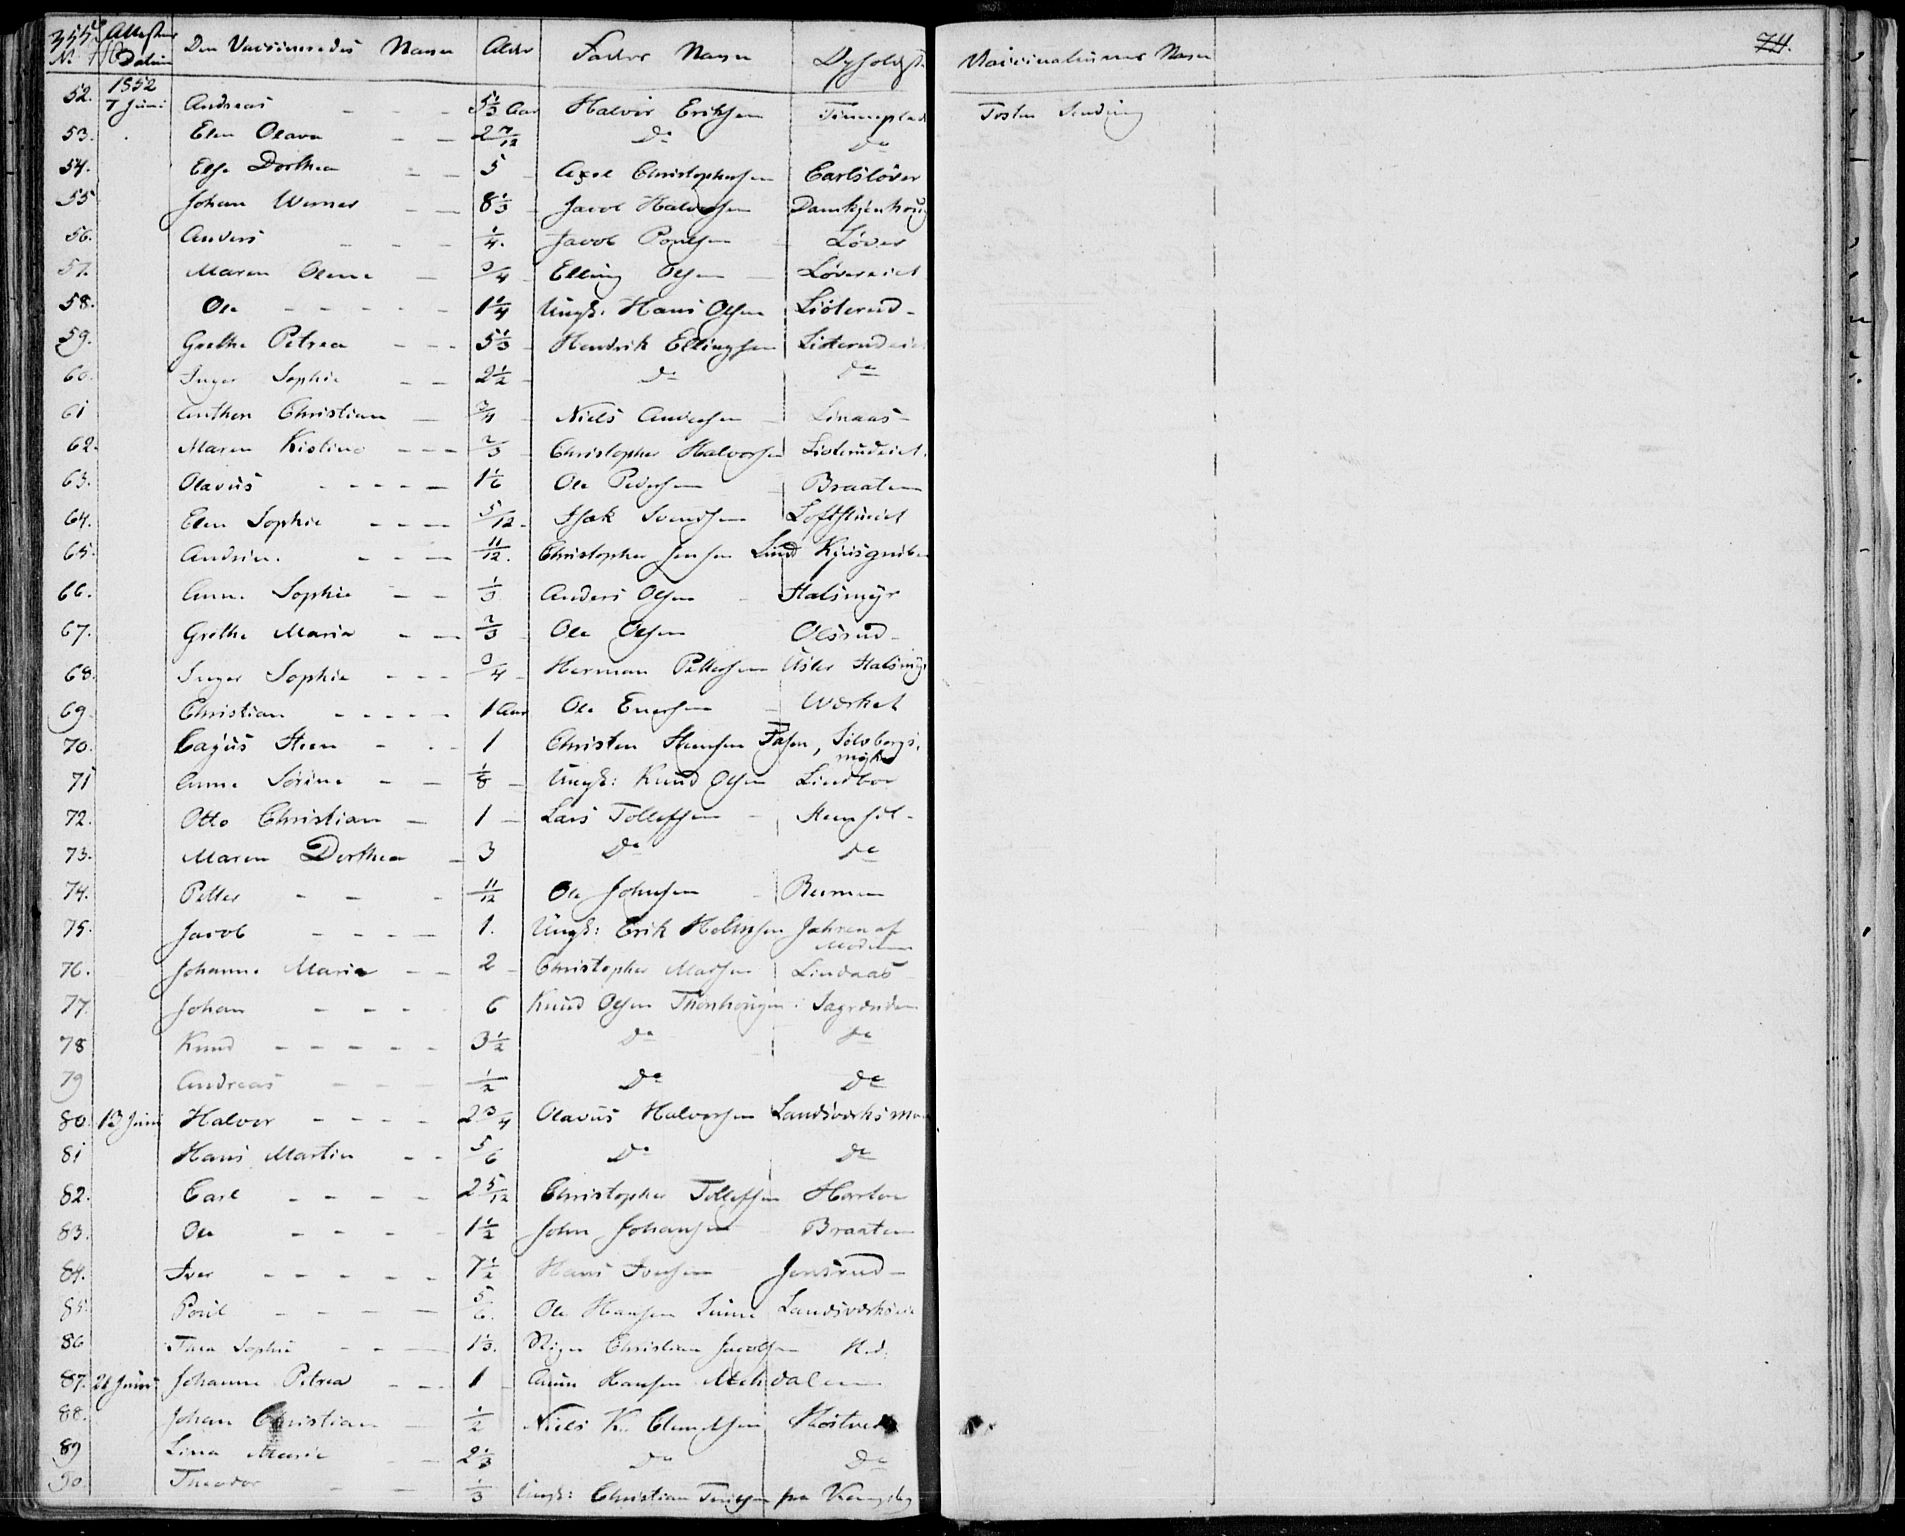 No Attestens Datum Den Vaccineredes Navn Alder Faders Navn Vaccinateurens Navn 74.
1852
52. 7 Juni Andreas - - - 5 1/3 Aar Halvor Eriksen Tosten
53. Elen Olava - - 2 7/12 Do Do
54. Else Dorthea - - 5 Axel Christophersen Carlsløver
55 Johan Werner - - 8 1/3 Jacob Halvorsen
56. Anders - - - 1/4. Jacob Poulsen Løver
57. Maren Olene - 3/4 Elling Olsen Løvereiet
58. Ole - - - - - 1 1/4 Ungk: Hans Olsen Listerud -
59. Grethe Petrea - - - 5 1/3 Hendrik Ellingsen Listerudeiet
60. Inger Sophie - - 2 1/2 Do Do
61 Anthon Christian - 3/4 Niels Andersen Linaas -
62. Maren Kistine - - - 2/3 Christopher Halvorsen Listerudeiet
63. Olavus - - - - - 1 1/6 Ole Pedersen Braaten
64. Elen Sophie - - - - 5/12 Isak Svendsen
65. Andrine. - - - - 11/12. Christopher Jensen Lind
66. Anne Sophie - - 1/3 Anders Olsen Halsmyr
67. Grethe Maria - - - 2/3 Ole Olsen Olsrud -
68. Inger Sophie - - - 3/4 Herman Pettersen Halsmyr
69. Christian - - - - - 1 Aar Ole Enersen Værket
70. Cajus Steen - - - 1 Christen Steensen Fasen, Sølvbergs.
71 Anne Sørine - - 1/8 - Ungk: Knud Olsen Lindboe
72. Otto Christian - 1 - Lars Tollefsen
73. Maren Dorthea - 3 Do Do
74. Petter - - - 11/12 Ole Johnsen
75. Jacob - - - - 1. Ungk: Erik Jahren af
Modum
76. Johanne Maria - - 2 - Christopher Madsen Lindaas
77. Johan - - - - 6 Knud Olsen Sagrenden
78 Knud - - - - - 3 1/2 Do Do
79 Andreas - - - 1/2 Do Do
80. 13 Juni Halvor - - - - 2 3/4 Olavus Halvorsen
81 Hans Martin - - 5/6 Do Do
82. Carl - - - - 2 5/12 Christopher Tollefsen
83. Ole - - - - 1 1/2 John Johansen Braaten
84. Iver - - - - - 7 1/2 Hans Iversen Jensrud -
85. Poul - - - - 5/6. Ole Hansen
86 Thea Sophie - - - 1 1/3. Christian Jacobsen
87. 21 Juni Johanne Petrea - - - 1 Hansen
88. Johan Christian - 1/2 Niels K.
89 Lina Marie - - 2 1/3 Do Do
90. Theodor - - 1/3 Ungk: Christian fra